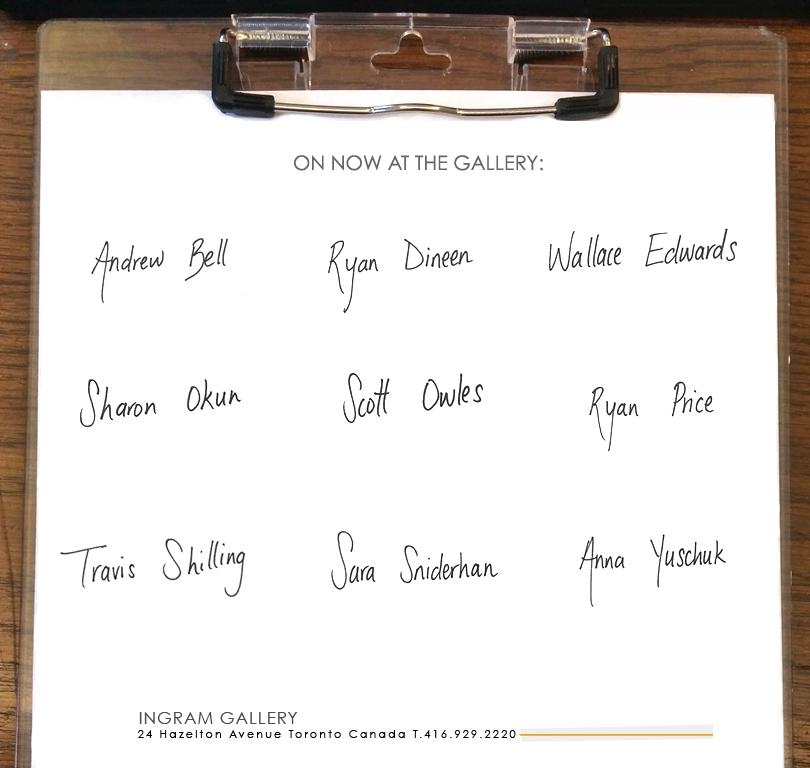 ON NOW AT THE GALLERY:
Andrew Bell Ryan Dineen Wallace Edwards
Sharon Okun Scott Owles Ryan Price
Travis Shilling Sara Sniderhan Anna Yuschuk
INGRAM GALLERY
24 Hazelton Avenue Toronto Canada T.416.929.2220